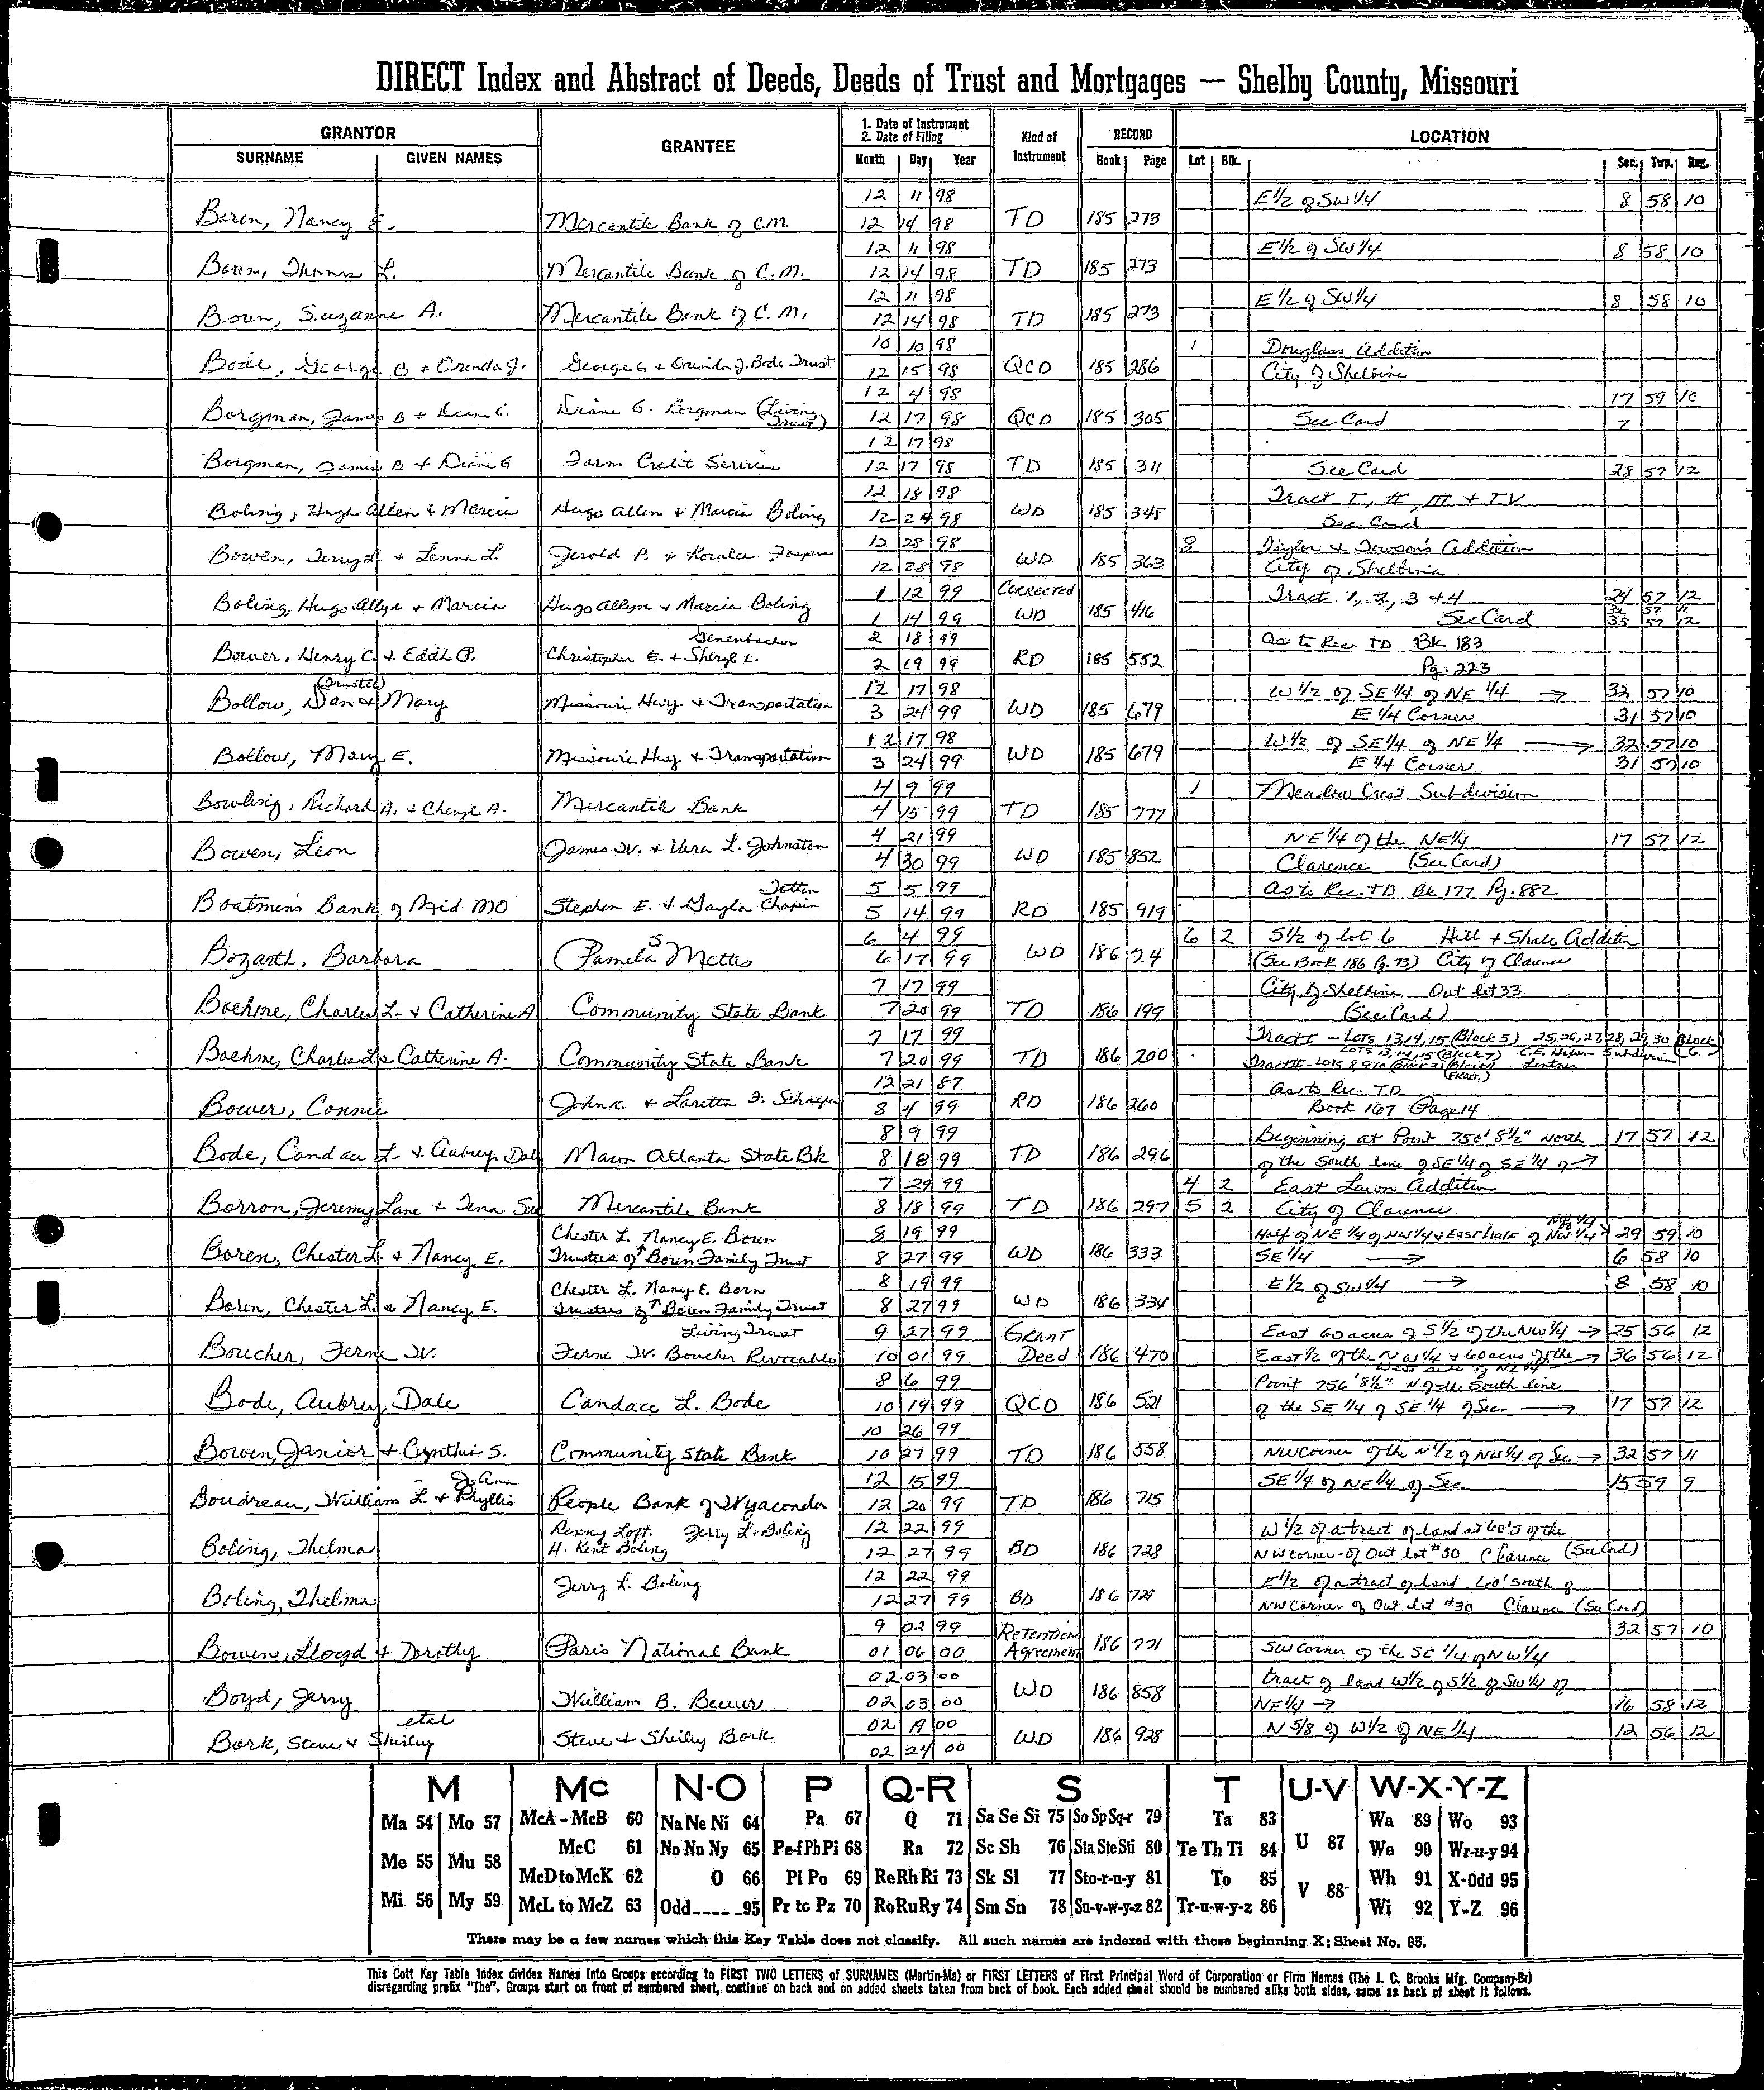 DIRECT Index and Abstract of Deeds, Deeds of Trust and Mortgages — Shelby County, Missouri
GRANTOR GRANTEE 1. Date of Instrument 2. Date of Filing Kind of Instrument RECORD LOCATION
SURNAME GIVEN NAMES Month Day Year Book Page Lot Blk. Sec. Twp. Rng.
12 11 98 E 1/2 of SW 1/4 8 58 10
Boren, Nancy E. Mercantile Bank of C.M. 12 14 98 TD 185 273
12 11 98 E 1/2 of SW 1/4 8 58 10
Boren, Thomas L. Mercantile Bank of C.M. 12 14 98 TD 185 273
12 11 98 E 1/2 of SW 1/4 8 58 10
Boren, Suzanne A. Mercantile Bank of C.M. 12 14 98 TD 185 273
10 10 98 1 Douglass Addition
Bode, George B + Orenda J. George G + Orenda J. Bode Trust 12 15 98 QCD 185 286 City of Shelbina
12 4 98 17 59 10
Borgman, James B + Diane G. Diane G. Borgman (Living Trust) 12 17 98 QCD 185 305 See Card 7
12 17 98
Borgman, James B + Diane G Farm Credit Services 12 17 98 TD 185 311 See Card 28 57 12
12 18 98 Tract I, II, III + IV
Boling, Hugh Allen + Marcia Hugo Allen + Marcia Boling 12 24 98 WD 185 348 See Card
12 28 98 8 Taylor + Towson's Addition
Bowen, Terry L + Lenna L. Jerold P. + 12 28 98 WD 185 363 City of Shelbina
1 12 99 Corrected Tract 1, 2, 3 + 4 24 57 12
Boling, Hugo Allyn + Marcia Hugo Allyn + Marcia Boling 1 14 99 WD 185 416 See Card 32 57 11 35 57 12
2 18 99 As to Rec. TD Bk 183
Bower, Henry C. + Edith P. Christopher E. + Sheryl L. 2 19 99 RD 185 552 Pg. 223
(Trustee) 12 17 98 W 1/2 of SE 1/4 of NE 1/4 → 32 57 10
Bollow, Dan + Mary Missouri Hwy + Transportation 3 24 99 WD 185 679 E 1/4 Corner 31 57 10
12 17 98 W 1/2 of SE 1/4 of NE 1/4 → 32 57 10
Bollow, Mary E. Missouri Hwy + Transportation 3 24 99 WD 185 679 E 1/4 Corner 31 57 10
4 9 99 1 Meadow Crest Subdivision
Bowling, Richard A. + Cheryl A. Mercantile Bank 4 15 99 TD 185 777
4 21 99 NE 1/4 of the NE 1/4 17 57 12
Bowen, Leon James W. + Vera L. Johnston 4 30 99 WD 185 852 Clarence (See Card)
Totten 5 5 99 As to Rec. TD Bk 177 Pg. 882
Boatmen's Bank of Mid MO Stephen E. + Gayla Chapin 5 14 99 RD 185 919
6 4 99 6 2 S 1/2 of lot 6 Hill + Shale Addition
Bozarth, Barbara Pamela S Mettes 6 17 99 WD 186 24 (See Book 186 Pg. 73) City of Clarence
7 17 99 City of Shelbina Out lot 33
Boehme, Charles L. + Catherine A Community State Bank 7 20 99 TD 186 199 (See Card)
7 17 99 Tract I - Lots 13, 14, 15 (Block 5) 25, 26, 27, 28, 29, 30 Block 6
Boehme, Charles L + Catherine A. Community State Bank 7 20 99 TD 186 200 Lots 13, 14, 15 (Block 7) Subdivision
12 21 87 As to Rec. TD
Bower, Connie John R. + Loretta F. 8 4 99 RD 186 260 Book 167 Page 14
8 9 99 Beginning at Point 756' 8 1/2" North 17 57 12
Bode, Candace L. + Aubrey Dale Macon Atlanta State Bk 8 18 99 TD 186 296 of the South line of SE 1/4 of SE 1/4 of →
7 29 99 4 2 East Lawn Addition
Borron, Jeremy Lane + Tena Sue Mercantile Bank 8 18 99 TD 186 297 5 2 City of Clarence
Chester L. Nancy E. Boren 8 19 99 Half of NE 1/4 of NW 1/4 + East half of NW 1/4 29 59 10
Boren, Chester L. + Nancy E. Trustees of Boren Family Trust 8 27 99 WD 186 333 SE 1/4 → 6 58 10
Chester L. Nancy E. Born 8 19 99 E 1/2 of SW 1/4 → 8 58 10
Boren, Chester L. + Nancy E. Trustees of Boren Family Trust 8 27 99 WD 186 334
Living Trust 9 27 99 Grant East 60 acres of S 1/2 of the NW 1/4 → 25 56 12
Boucher, Ferne W. Ferne W. Boucher Revocable 10 01 99 Deed 186 470 East 1/2 of the NW 1/4 + 60 acres of the West side of NE 1/4 → 36 56 12
8 6 99 Point 756' 8 1/2" N of the South line
Bode, Aubrey Dale Candace L. Bode 10 19 99 QCD 186 521 of the SE 1/4 of SE 1/4 of Sec. → 17 57 12
10 26 99
Bowen, Junior + Cynthia S. Community State Bank 10 27 99 TD 186 558 NW corner of the N 1/2 of NW 1/4 of Sec → 32 57 11
JoAnn 12 15 99 SE 1/4 of NE 1/4 of Sec 15 59 9
Boudreau, William L. + Phyllis People Bank of Wyaconda 12 20 99 TD 186 715
Penny Loft. Jerry L. Boling 12 22 99 W 1/2 of a tract of land at 60's of the
Boling, Thelma H. Kent Boling 12 27 99 BD 186 728 NW corner of Out lot #30 Clarence (See Card)
12 22 99 E 1/2 of a tract of land 60' south of
Boling, Thelma Jerry L. Boling 12 27 99 BD 186 729 NW corner of Out Lot #30 Clarence (See Card)
9 02 99 Retention 32 57 10
Bowen, Lloyd + Dorothy Paris National Bank 01 06 00 Agreement 186 771 SW corner of the SE 1/4 of NW 1/4
02 03 00 tract of land W 1/2 of S 1/2 of SW 1/4 of
Boyd, Jerry William B. Brewer 02 03 00 WD 186 858 NE 1/4 → 16 58 12
etal 02 19 00 N 5/8 of W 1/2 of NE 1/4 12 56 12
Bork, Steve + Shirley Steve + Shirley Bork 02 24 00 WD 186 928
M Mc N-O P Q-R S T U-V W-X-Y-Z
Ma 54 Mo 57 McA - McB 60 Na Ne Ni 64 Pa 67 Q 71 Sa Se Si 75 So Sp Sq-r 79 Ta 83 Wa 89 Wo 93
McC 61 No Nu Ny 65 Pe-f Ph Pi 68 Ra 72 Sc Sh 76 Sta Ste Sti 80 Te Th Ti 84 U 87 We 90 Wr-u-y 94
Me 55 Mu 58 McD to McK 62 O 66 Pl Po 69 Re Rh Ri 73 Sk Sl 77 Sto-r-u-y 81 To 85 Wh 91 X-Odd 95
Mi 56 My 59 McL to McZ 63 Odd 95 Pr to Pz 70 Ro Ru Ry 74 Sm Sn 78 Su-v-w-y-z 82 Tr-u-w-y-z 86 V 88 Wi 92 Y-Z 96
There may be a few names which this Key Table does not classify. All such names are indexed with those beginning X; Sheet No. 95.
This Cott Key Table Index divides Names Into Groups according to FIRST TWO LETTERS of SURNAMES (Martin-Ma) or FIRST LETTERS of First Principal Word of Corporation or Firm Names (The J. C. Brooks Mfg. Company-Br)
disregarding prefix "The". Groups start on front of numbered sheet, continue on back and on added sheets taken from back of book. Each added sheet should be numbered alike both sides, same as back of sheet it follows.